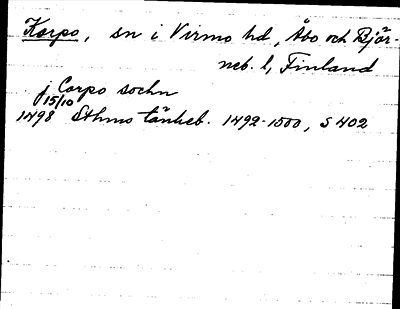 Korpo, sn i Virmo hd, Åbo och Björ-
neb. l, Finland
j Corpo sochn
15/10
1498 Sthms tänkeb. 1492-1500, s 402